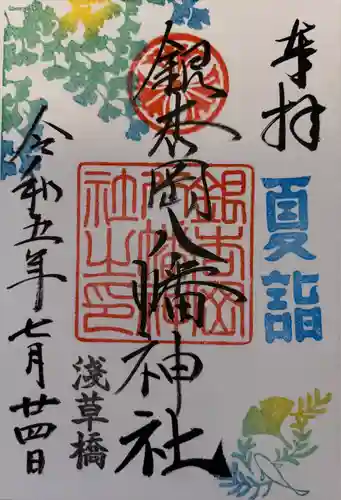 奉拝
夏詣
銀杏岡八幡神社
銀杏岡八幡神社之印
浅草橋
令和五年七月廿四日